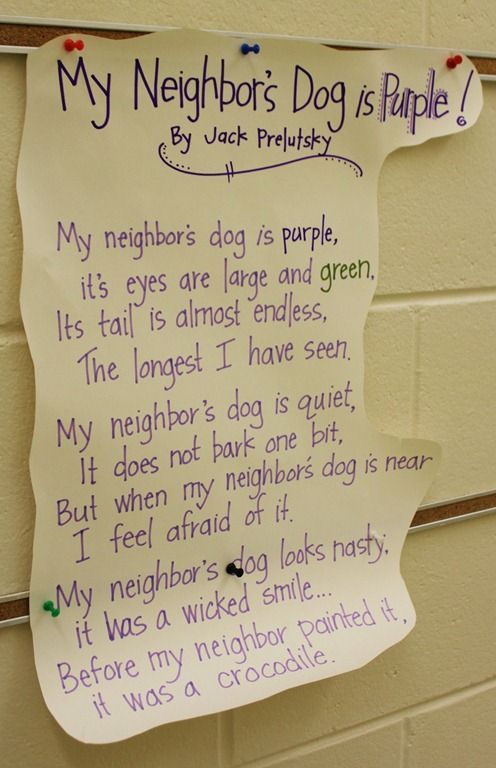 My Neighbor's Dog is Purple!
By Jack Prelutsky
My neighbor's dog is purple,
it's eyes are large and green.
Its tail is almost endless,
The longest I have seen.
My neighbor's dog is quiet,
It does not bark one bit,
But when my neighbor's dog is near
I feel afraid of it.
My neighbor's dog looks nasty,
it has a wicked smile...
Before my neighbor painted it,
it was a crocodile.